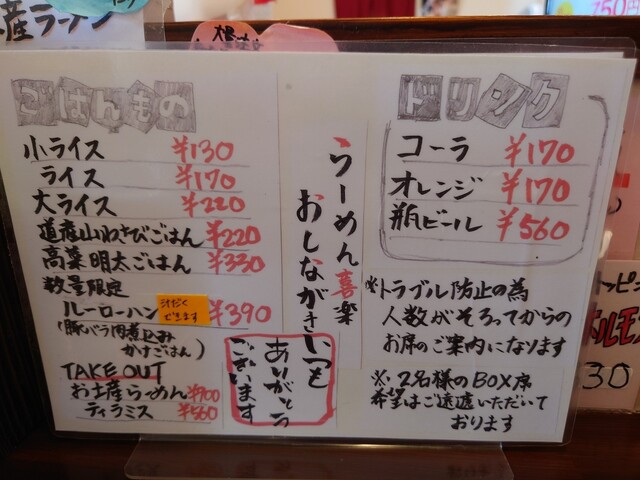 産ラーメン
150円
ごはんもの
小ライス ¥130
ライス ¥170
大ライス ¥220
道産山わさびごはん ¥220
高菜明太ごはん ¥330
数量限定
ルーローハン 汁だくできます ¥390
(豚バラ肉煮込み
かけごはん)
TAKE OUT
お土産らーめん ¥900
ティラミス ¥560
らーめん喜楽
おしながき
いつも
ありがとう
ございます
ドリンク
コーラ ¥170
オレンジ ¥170
瓶ビール ¥560
※トラブル防止の為
人数がそろってからの
お席のご案内になります
※2名様のBOX席
希望はご遠慮いただいて
おります
トッピ
ホルモ
30